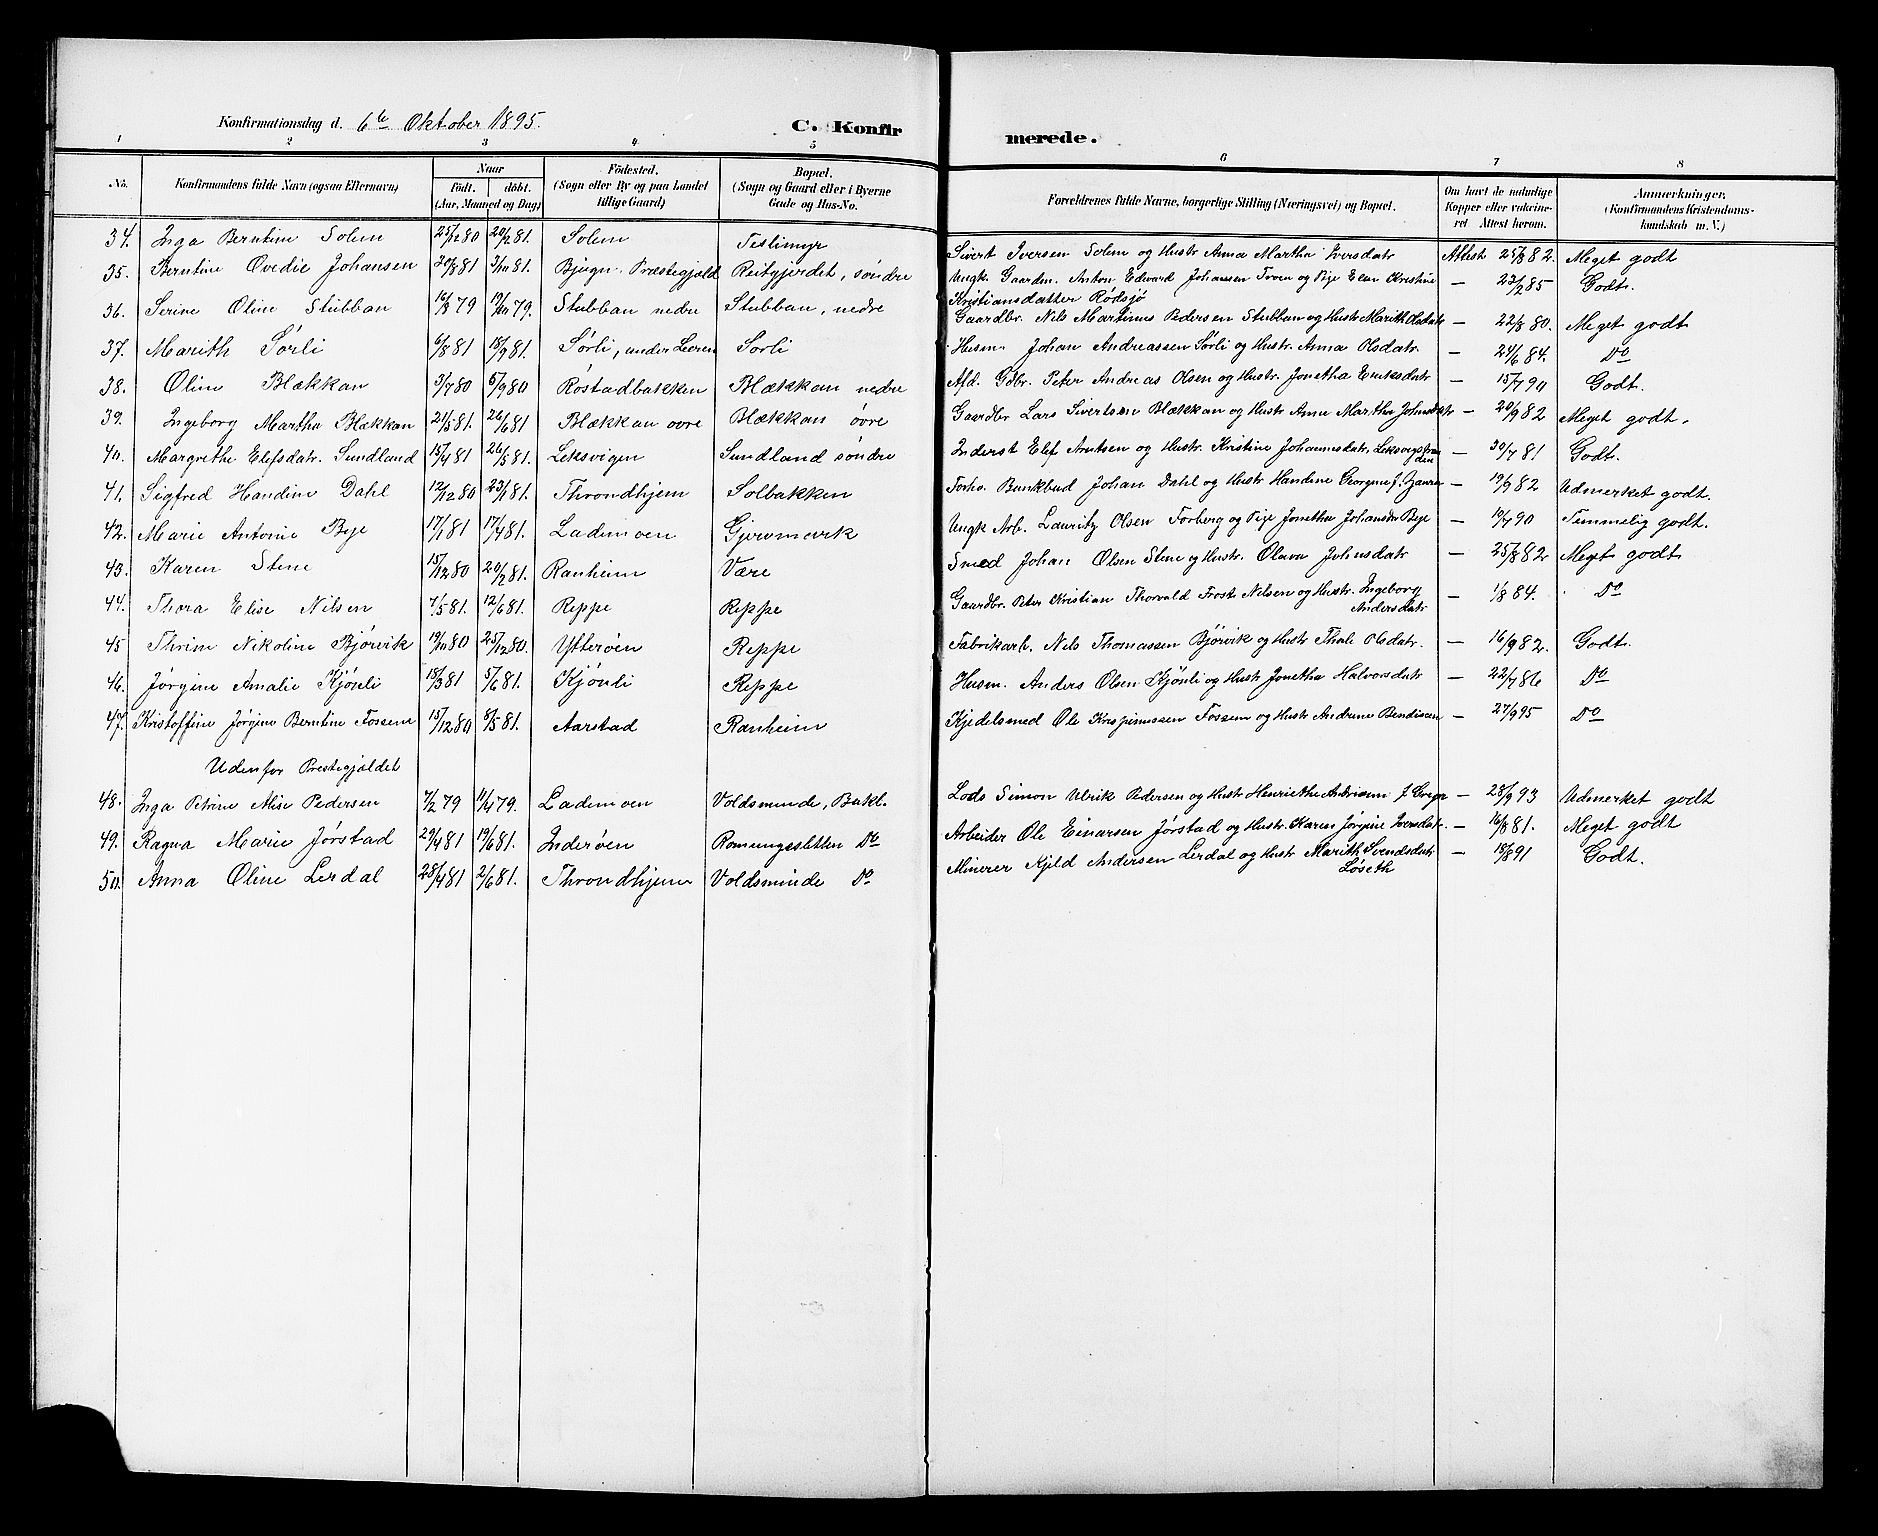 Konfirmationsdag d. 6te Oktober 1895. C. Konfirmerede.
1 2 3 4 5 6 7 8
No. Konfirmandens fulde Navn (ogsaa Efternavn) Naar födt. döbt. (Aar, Maaned og Dag) Födested. (Sogn eller By og paa Landet tillige Gaard) Bopæl. (Sogn og Gaard eller i Byerne Gade og Hus-No. Forældrenes fulde Navne, borgerlige Stilling (Næringsvei) og Bopæl. Om havt de naturlige Kopper eller vakcineret Attest herom. Anmærkninger, (Konfirmandens Kristendomskundskab m. V.)
34. Inga Berntine Solem 25/12 80 20/2 81. Solem Teslimyr Sivert Iversen Solem og Hustr Anna Martha Iversdatr Attest 25/8 82. Meget godt
35. Berntine Ovedie Johansen 20/8 81 3/10 81. Bjugn Præstegjeld Reitgjerdet, söndre Ungk. Gaardm. Anton Edvard Johansen Tven og Pige Elen Kristine Kristiansdatter Rödsjö — 23/2 85 Godt.
36. Serine Oline Stubban 16/8 79 19/10 79. Stubban nedre Stubban, nedre Gaardbr. Nils Martinus Pedersen Stubban og Hustr Marith Olsdatr — 22/8 80. Meget godt
37. Marith Sörli 6/8 81 18/9 81. Sörli, under Leren Sorli Husm. Johan Andreassen Sörli og Hustr. Anna Olsdatr. — 24/6 84. Do
38. Oline Blækkan 3/7 80 5/9 80 Röstadbakken Blækkan nedre Afd. Gdbr. Peter Andreas Olsen og Hustr. Jonetha Eriksdatr — 15/7 90 Godt.
39. Ingeborg Martha Blækkan 21/5 81. 26/6 81 Blækkan ovre Blækkan övre Gaardbr Lars Sivertsen Blækkan og Hustr Ann Martha Johnsdatr — 20/9 82 Meget godt.
40. Margrethe Elefsdatr. Sundland 15/4 81 26/5 81. Leksvigen Sundland söndre Inderst Elef Arntsen og Hustr. Kristine Johannsdatr, — 30/7 81 Godt.
41. Sigfred Handine Dahl 12/12 80 23/1 81. Throndhjem Solbakken Forhv. Bankbud Johan Dahl og Hustr Handine Georgine f. — 19/9 82 Udmerket godt.
42. Marie Antonie Bye 17/1 81 17/4 81. Lademoen Gjevomerik Ungk Arb. Lauritz Olsen Forberg og Pige Jonetha Johansdr Bye — 19/7 90 Temmelig godt.
43. Karen Stene 15/12 80 20/2 81. Ranheim Være Smed Johan Olsen Stene og Hustr. Olava Johnsdatr — 25/8 82. Meget godt
44. Thora Elise Nilsen 7/5 81. 12/6 81 Reppe Reppe Gaardbr. Peter Kristian Thorvald Frost Nilsen og Hustr. Ingeborg Andersdatr — 1/8 84. Do
45 Thrine Nikoline Björvik 19/10 80 25/12 80. Ytteröen Reppe Fabrikarb. Nils Thomassen Björvik og Hustr Thale Olsdatr. — 16/9 82. Godt.
46. Jörgine Amalie Kjönli 18/3 81 5/6 81. Kjönli Reppe Husm. Anders Olsen Kjönli og Hustr Jonetha Halvorsdatr — 22/7 86 Do
47. Kristoffine Jörgine Berntine Fossem 15/12 80 8/5 81. Aarstad Ranheim Kjedelsmed Ole Krispinussen Fossem og Hustr Andrene Bendixen — 27/9 95 Do
Udenfor Prestegjældet
48. Inga Petrine Alise Pedersen 7/2 79 11/4 79. Lademoen Voldsminde, Bakl. Lods Simon Ulrik Pedersen og Hustr Henriethe f. — 28/9 93 Udmerket godt
49. Ragna Marie Jörstad 29/4 81 19/6 81. Inderöen Romungssletten Do Arbeider Ole Einarsen Jörstad og Hustr. Karen Jörgine Iversdatr. — 16/8 81. Meget godt
50. Anna Oline Lerdal 28/4 81 2/6 81. Throndhjem Voldsminde Do Minerer Kjeld Andersen Lerdal og Hustr Marith Svendsdatr Löseth — 18/8 91 Godt.